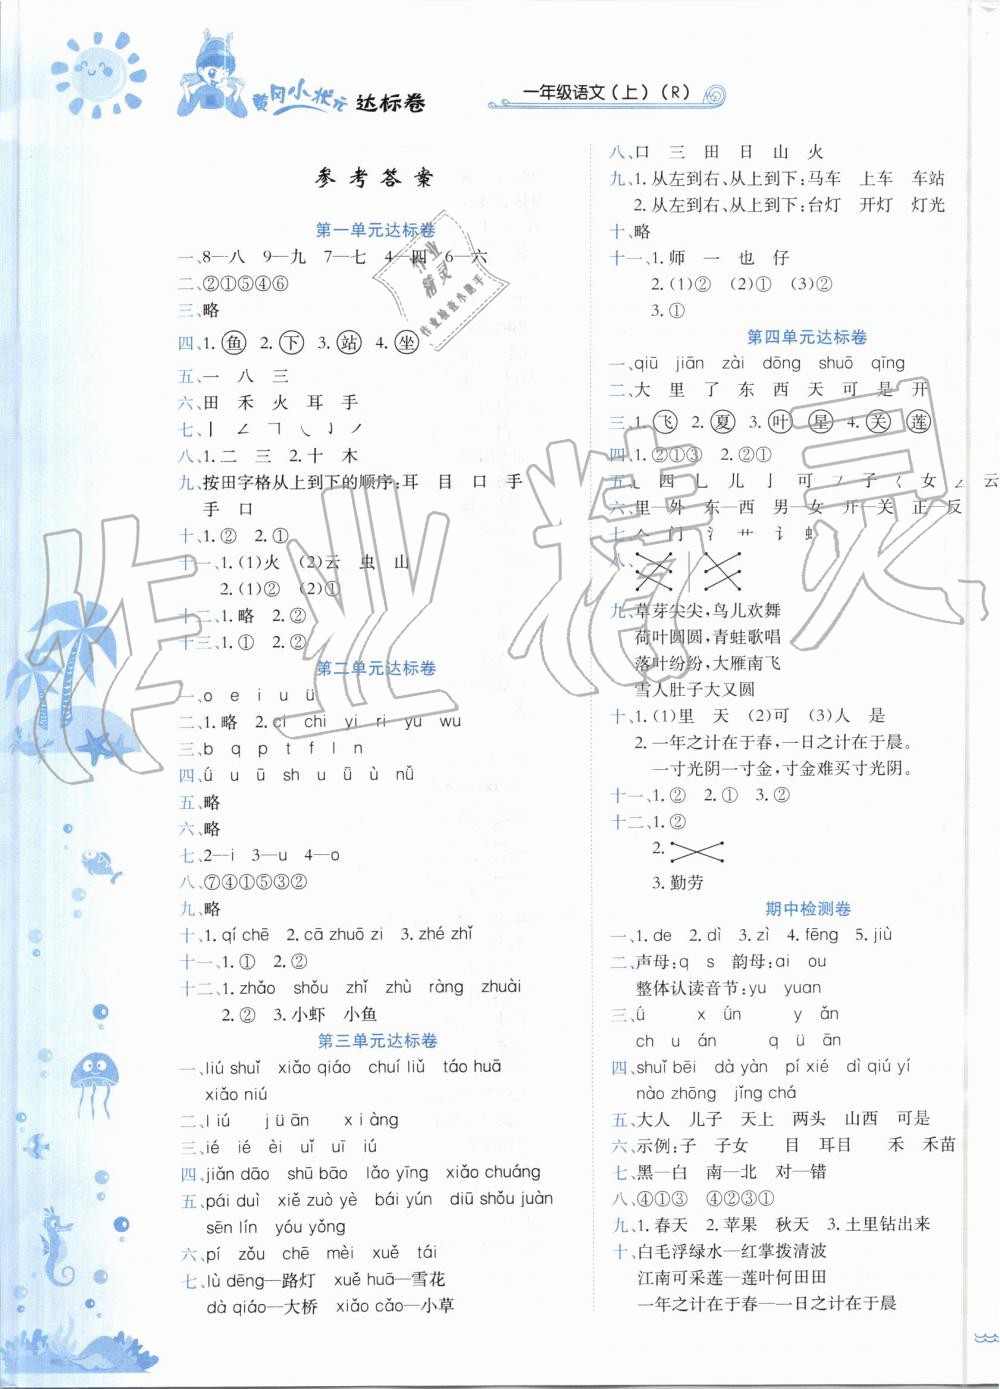 黄冈小状元 达标卷
一年级语文(上)(R)
参考答案
第一单元达标卷
一、8—八 9—九 7—七 4—四 6—六
二、②①⑤④⑥
三、略
四、1.鱼 2.下 3.站 4.坐
五、一 八 三
六、田 禾 火 耳 手
七、
八、1.二 三 2.十 木
九、按田字格从上到下的顺序:耳 目 口 手
手 口
十、1.② 2.①
十一、1.(1)火 (2)云 虫 山
2.(1)② (2)①
十二、1.略 2.②
十三、1.② 2.①
第二单元达标卷
一、o e i u ü
二、1.略 2.ci chi yi ri yu wu
三、b q p t f l n
四、ǘ u ū sh u ǖ ù nǚ
五、略
六、略
七、2—i 3—u 4—o
八、⑦④①⑤③②
九、略
十、1.qí chē 2.cā zhuō zi 3.zhé zhǐ
十一、1.① 2.②
十二、1.zhǎo shǒu zhǐ zhù ràng zhuài
2.② 3.小虾 小鱼
第三单元达标卷
一、liú shuǐ xiǎo qiáo chuí liǔ táo huā
xiǎo niú
二、l iú j ü ān x i àng
三、ié ié èi uǐ uī iú
四、jiǎn dāo shū bāo lǎo yīng xiǎo chuáng
五、pái duì xiě zuò yè bái yún diū shǒu juàn
sēn lín yóu yǒng
六、pí zǒu chē mèi xuě tái
七、lù dēng—路灯 xuě huā—雪花
dà qiáo—大桥 xiǎo cǎo—小草
八、口 三 田 日 山 火
九、1.从左到右、从上到下:马车 上车 车站
2.从左到右、从上到下:台灯 开灯 灯光
十、略
十一、1.师 一 也 仔
2.(1)② (2)① (3)②
3.①
第四单元达标卷
一、qiū jiān zài dōng shuō qīng
二、大 里 了 东 西 天 可 是 开
三、1.飞 2.夏 3.叶 星 4.关 莲
四、1.②①③ 2.②①
六、里—外 东—西 男—女 开—关 正—反
八、
九、草芽尖尖,鸟儿欢舞
荷叶圆圆,青蛙歌唱
落叶纷纷,大雁南飞
雪人肚子大又圆
十、1.(1)里 天 (2)可 (3)人 是
2.一年之计在于春,一日之计在于晨。
一寸光阴一寸金,寸金难买寸光阴。
十一、1.② 2.① 3.②
十二、1.②
2.
3.勤劳
期中检测卷
一、1.de 2.dì 3.zì 4.fēng 5.jiù
二、声母:q s 韵母:ai ou
整体认读音节:yu yuan
三、ǘ x ǖn y ún
ch u án q ǘ
四、shuǐ bēi dà yàn pí xié dì qiú
nào zhōng jǐng chá
五、大人 儿子 天上 两头 山西 可是
六、示例:子 子女 目 耳目 禾 禾苗
七、黑—白 南—北 对—错
八、④①③ ④②③①
九、1.春天 2.苹果 秋天 3.土里钻出来
十、白毛浮绿水—红掌拨清波
江南可采莲—莲叶何田田
一年之计在于春—一日之计在于晨
作业精灵
作业检查小助手
作业精灵